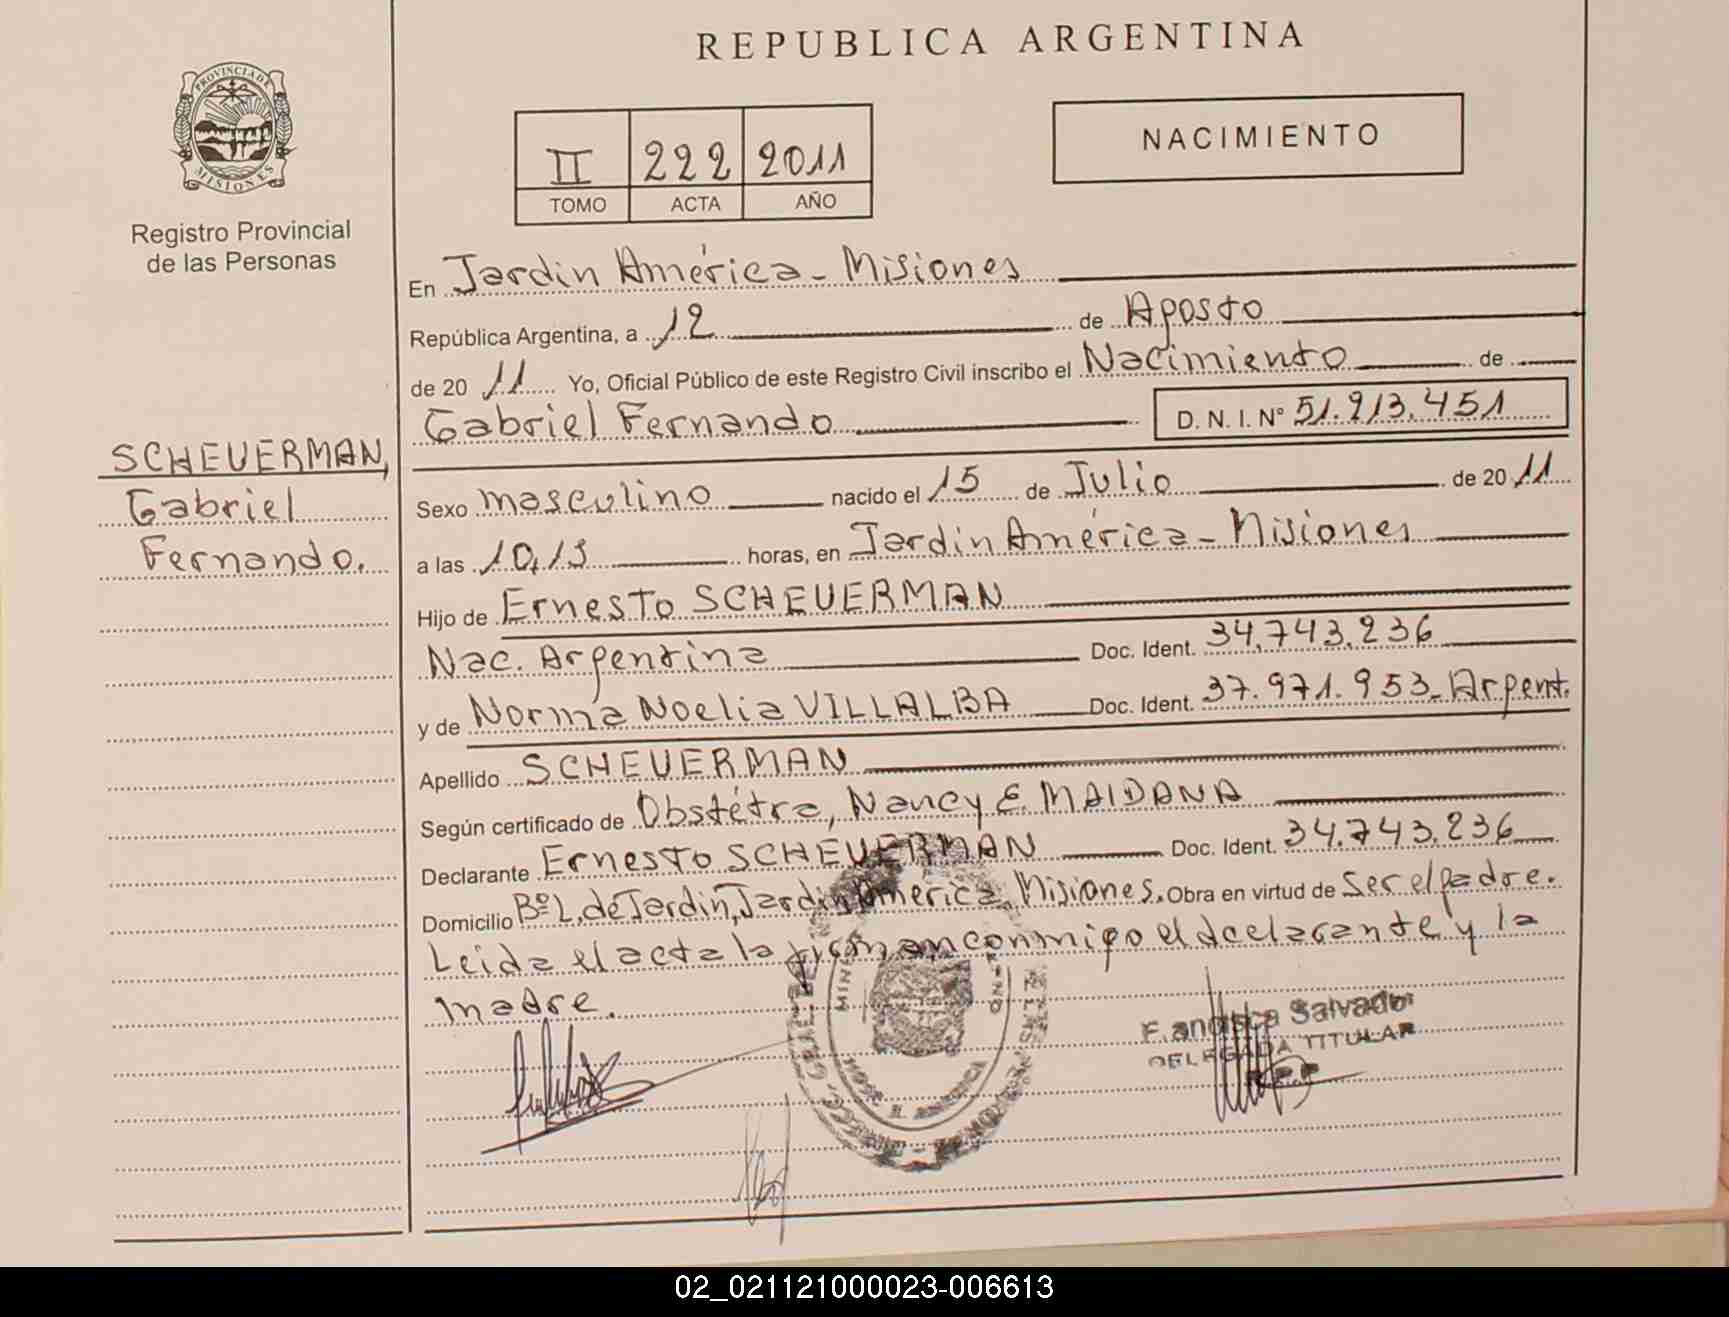 REPUBLICA ARGENTINA
PROVINCIA DE
MISIONES
Registro Provincial
de las Personas
II 222 2011
TOMO ACTA AÑO
NACIMIENTO
En Jardin América - Misiones
República Argentina, a 12 de Agosto
de 20 11 Yo, Oficial Público de este Registro Civil inscribo el Nacimiento de
Gabriel Fernando D. N. I. Nº 51.913.451
SCHEUERMAN,
Gabriel
Fernando.
Sexo masculino nacido el 15 de Julio de 20 11
a las 10,13 horas, en Jardin América - Misiones
Hijo de Ernesto SCHEUERMAN
Nac. Argentina Doc. Ident. 34.743.236
y de Norma Noelia VILLALBA Doc. Ident. 37.971.953 - Argent.
Apellido SCHEUERMAN
Según certificado de Obstétra, Nancy E. MAIDANA
Declarante Ernesto SCHEUERMAN Doc. Ident. 34.743.236
Domicilio Bº L. de Jardin, Jardin América, Misiones. Obra en virtud de Ser el padre.
Leida el acta la firman conmigo el declarante y la
madre.
Francisca Salvador
DELEGADA TITULAR
02_021121000023-006613